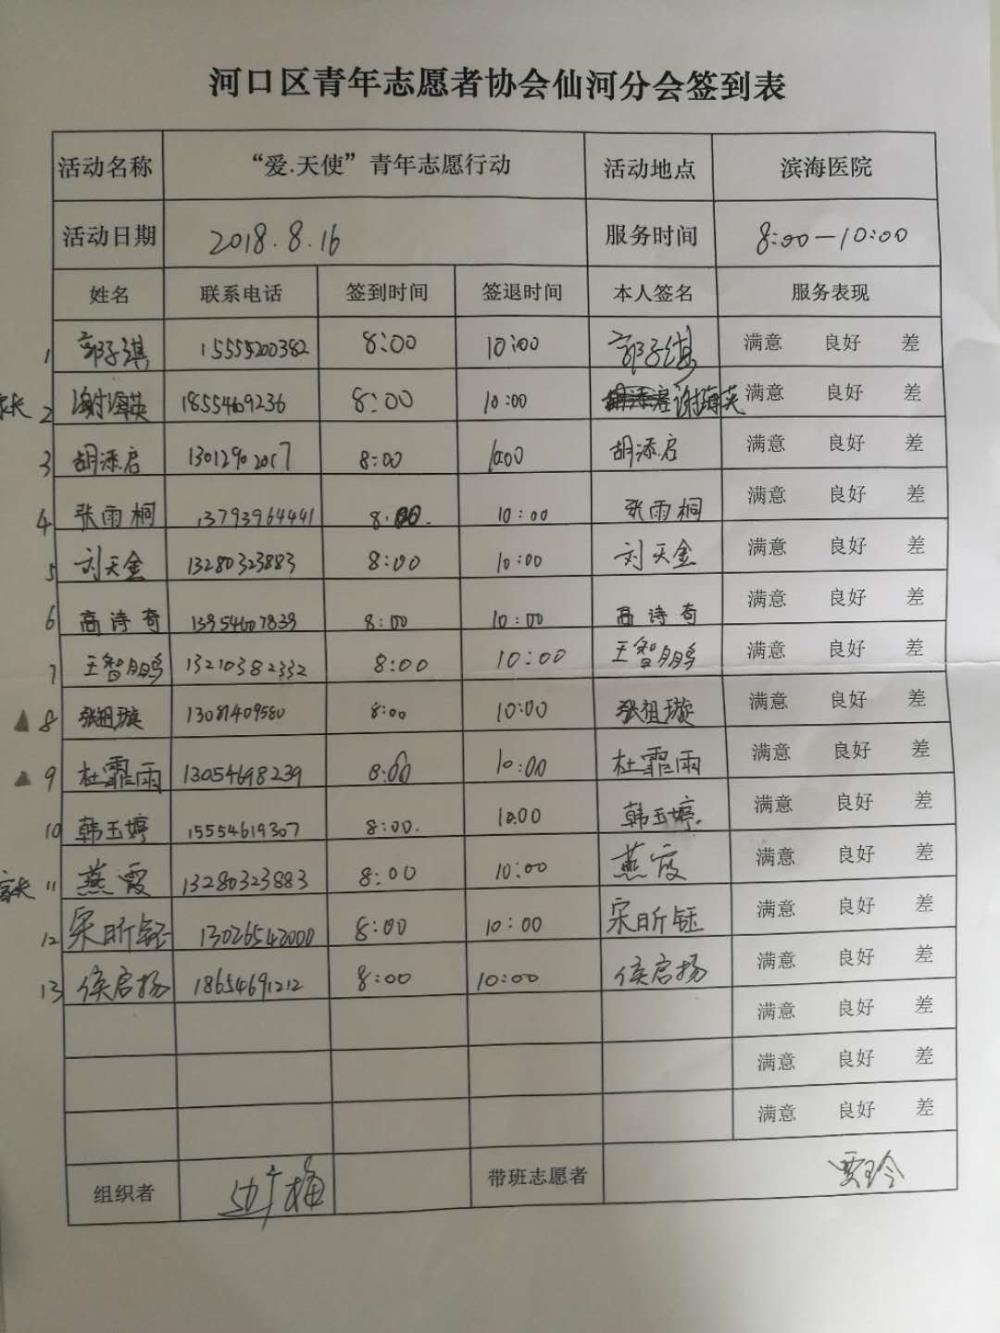 河口区青年志愿者协会仙河分会签到表
活动名称 “爱.天使”青年志愿行动 活动地点 滨海医院
活动日期 2018.8.16 服务时间 8:00—10:00
姓名 联系电话 签到时间 签退时间 本人签名 服务表现
1 郭子淇 15555200382 8:00 10:00 郭子淇 满意 良好 差
家长 2 谢海英 18554609236 8:00 10:00 谢海英 满意 良好 差
3 胡添启 13012902017 8:00 10:00 胡添启 满意 良好 差
4 张雨桐 13793964441 8:00. 10:00 张雨桐 满意 良好 差
5 刘天金 13280323883 8:00 10:00 刘天金 满意 良好 差
6 高诗奇 13954607839 8:00 10:00 高诗奇 满意 良好 差
7 王智鹏 13210382332 8:00 10:00 王智鹏 满意 良好 差
▲ 8 张祖璇 13081409580 8:00 10:00 张祖璇 满意 良好 差
▲ 9 杜霏雨 13054698239 8:00 10:00 杜霏雨 满意 良好 差
10 韩玉婷 15554619307 8:00. 10:00 韩玉婷. 满意 良好 差
家长 11 燕霞 13280323883 8:00 10:00 燕霞 满意 良好 差
12 宋昕钰 13026542000 8:00 10:00 宋昕钰 满意 良好 差
13 侯启扬 18654691212 8:00 10:00 侯启扬 满意 良好 差
满意 良好 差
满意 良好 差
满意 良好 差
组织者 边广梅 带班志愿者 贾玲